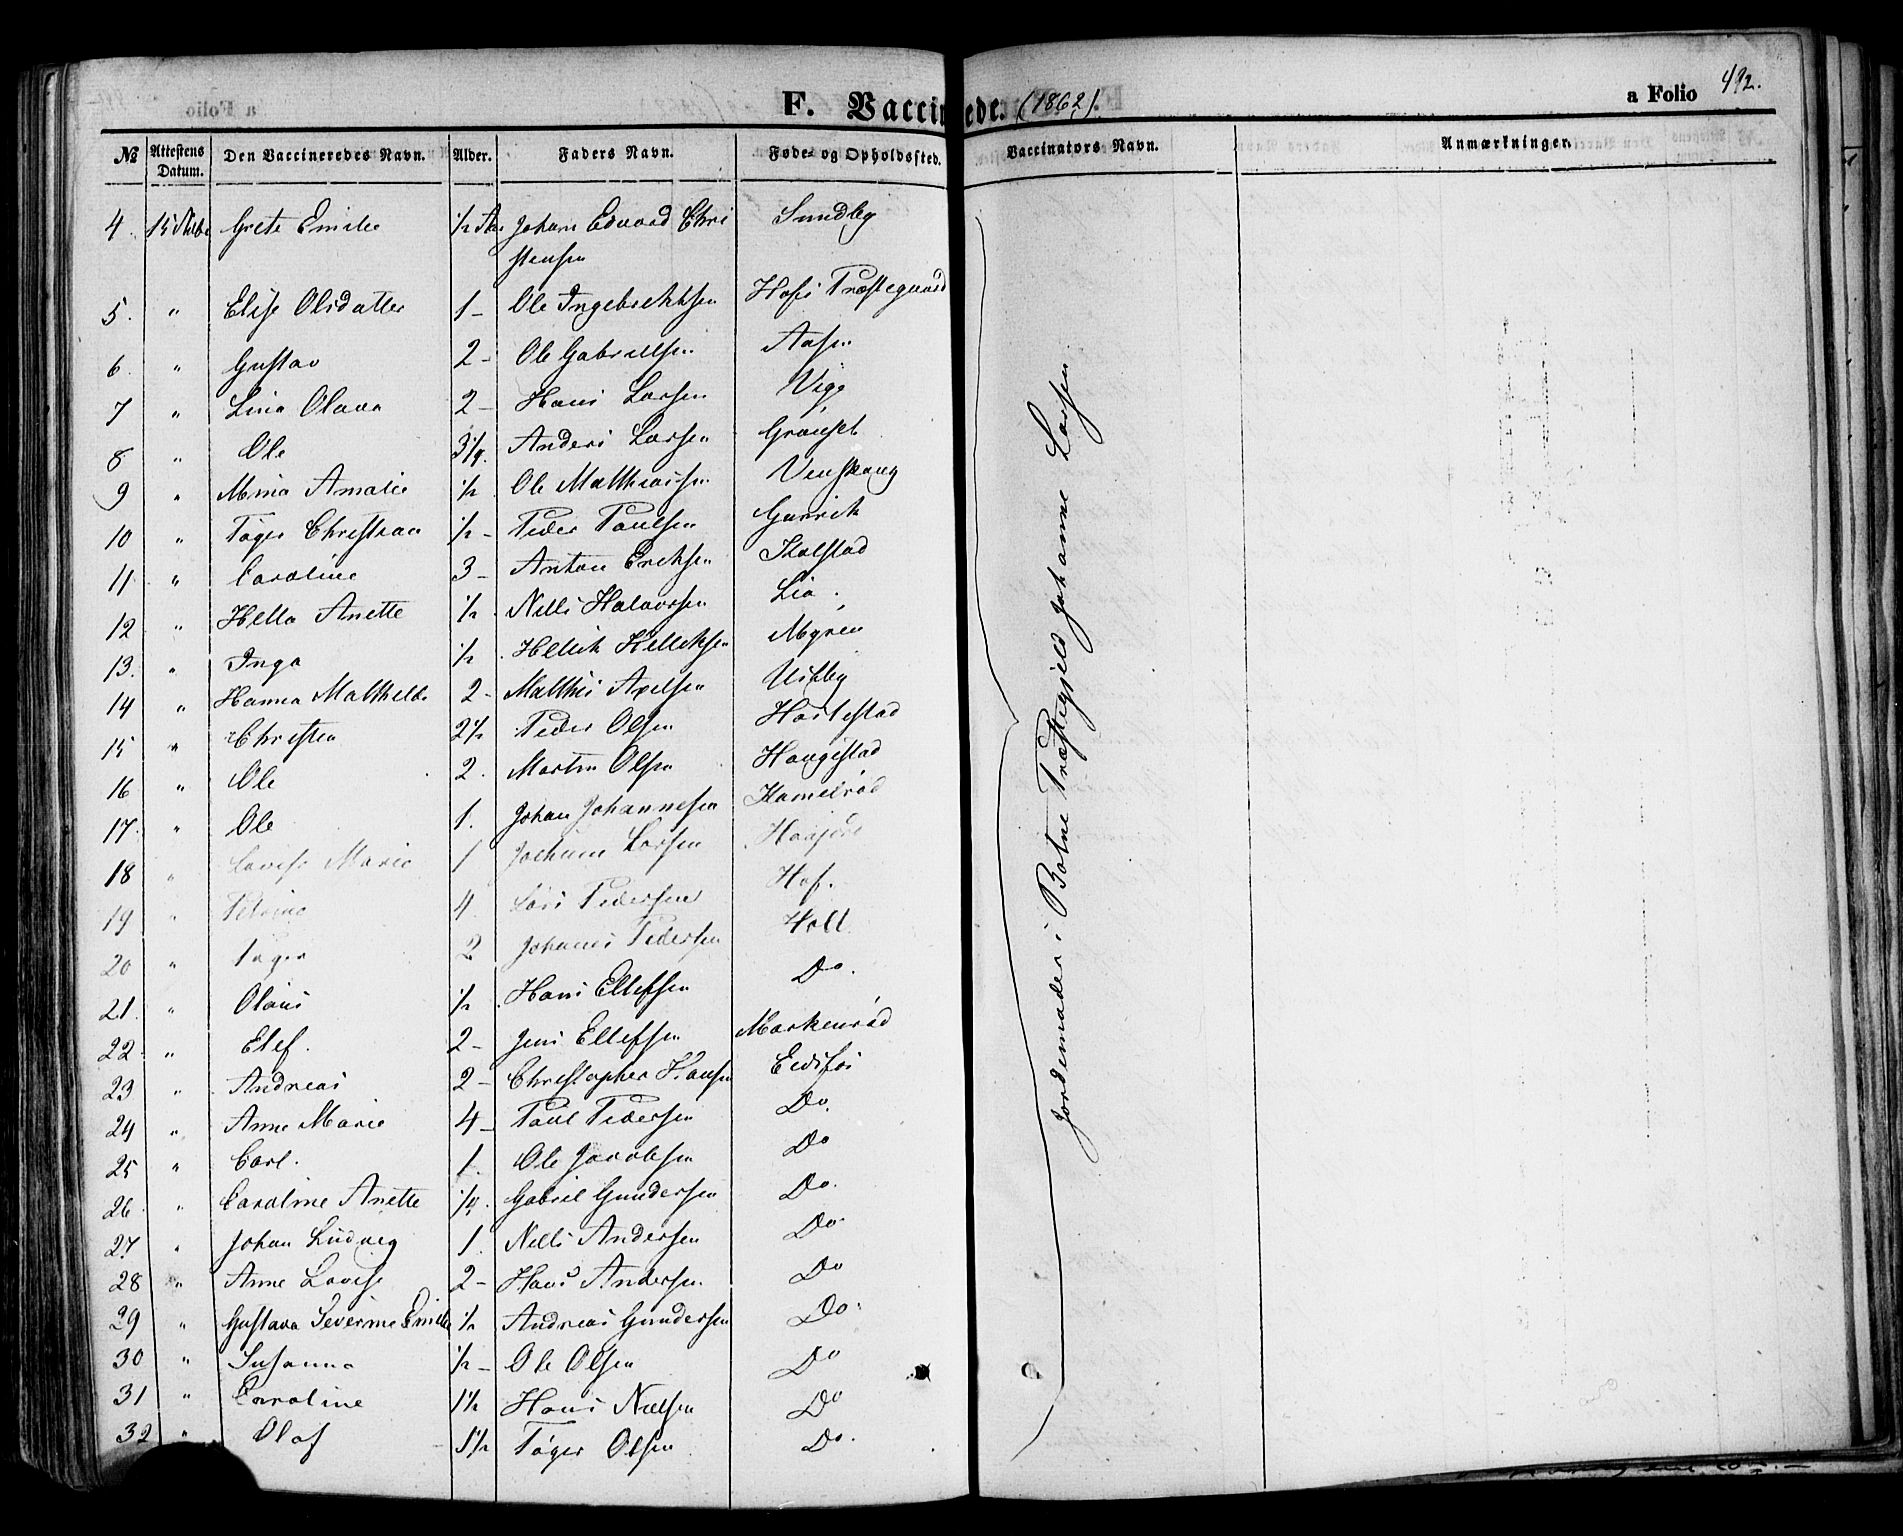 F. Vaccinerede. (1862).
a Folio 492.
№ Attestens Datum. Den Vaccineredes Navn. Alder. Faders Navn. Føde- og Opholdssted. Vaccinators Navn. Anmærkninger.
4. 15 Grete Emilie 1/2 Johan Edvard Chri Sundby
stensen
5. " Elise Olsdatter 1 - Ole Ingebrethsen Hofs Præstegaard
6. " Gustav 2 - Ole Gabrielsen Aasen
7 " Lina Olava 2 - Hans Larsen Vige
8 " Ole 3/4. Anders Larsen Grønset
9 " Mina Amalie 1/2 Ole Matthiassen
10 " Tøger Christian 1/2 - Peder Paulsen
11 " Caroline 3 - Anton Eriksen
12 " Hella Anette 1/2 Nells Halvorsen Lia.
13. " Inga 1/2 Hellik Helliksen Myren
14 " Hanna Mathilde 2 - Matthis Axelsen
15 " Christen 2 1/2 Peder Olsen Hortestad
16 " Ole 2. Martin Olsen Haugestad
17. " Ole 1. Johan Johannesen
18 " Lovise Marie 1 Jochum Larsen
19 " 4. Lars Pedersen Hof.
20 " 2 Johannes Pedersen Holt
21. " Olaus 1/2 Hans Ellefsen Do.
22. " Elef. 2 - Jens Ellefsen Markenrød
23 " Andreas 2 - Christopher Hansen Eidsfos
24 " Anne Marie 4 - Paul Pedersen Do.
25 " Carl. 1. Ole Jacobsen Do
26. " Caroline Anette 1/4. Gabriel Gundersen Do.
27 " Johan Ludvig 1. Nells Andersen Do.
28 " Anne Lovise 2 - Hans Andersen Do
29 " Gustava Severine Emilie 1/2 Andreas Gundersen Do.
30 " Susanna 1/2 - Ole Olsen Do
31 " Caroline 1 1/2 Hans Nielsen Do
32 " Olaf 1 1/2 Tøger Olsen Do.
Jordemoder i Botne Præstegjeld Johanne Larsen